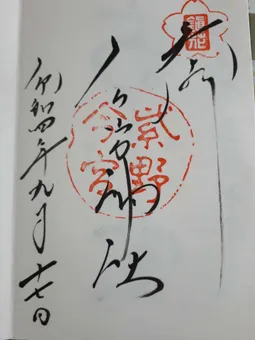 奉拝
鎮花
今宮神社
紫野
今宮
令和四年九月十七日